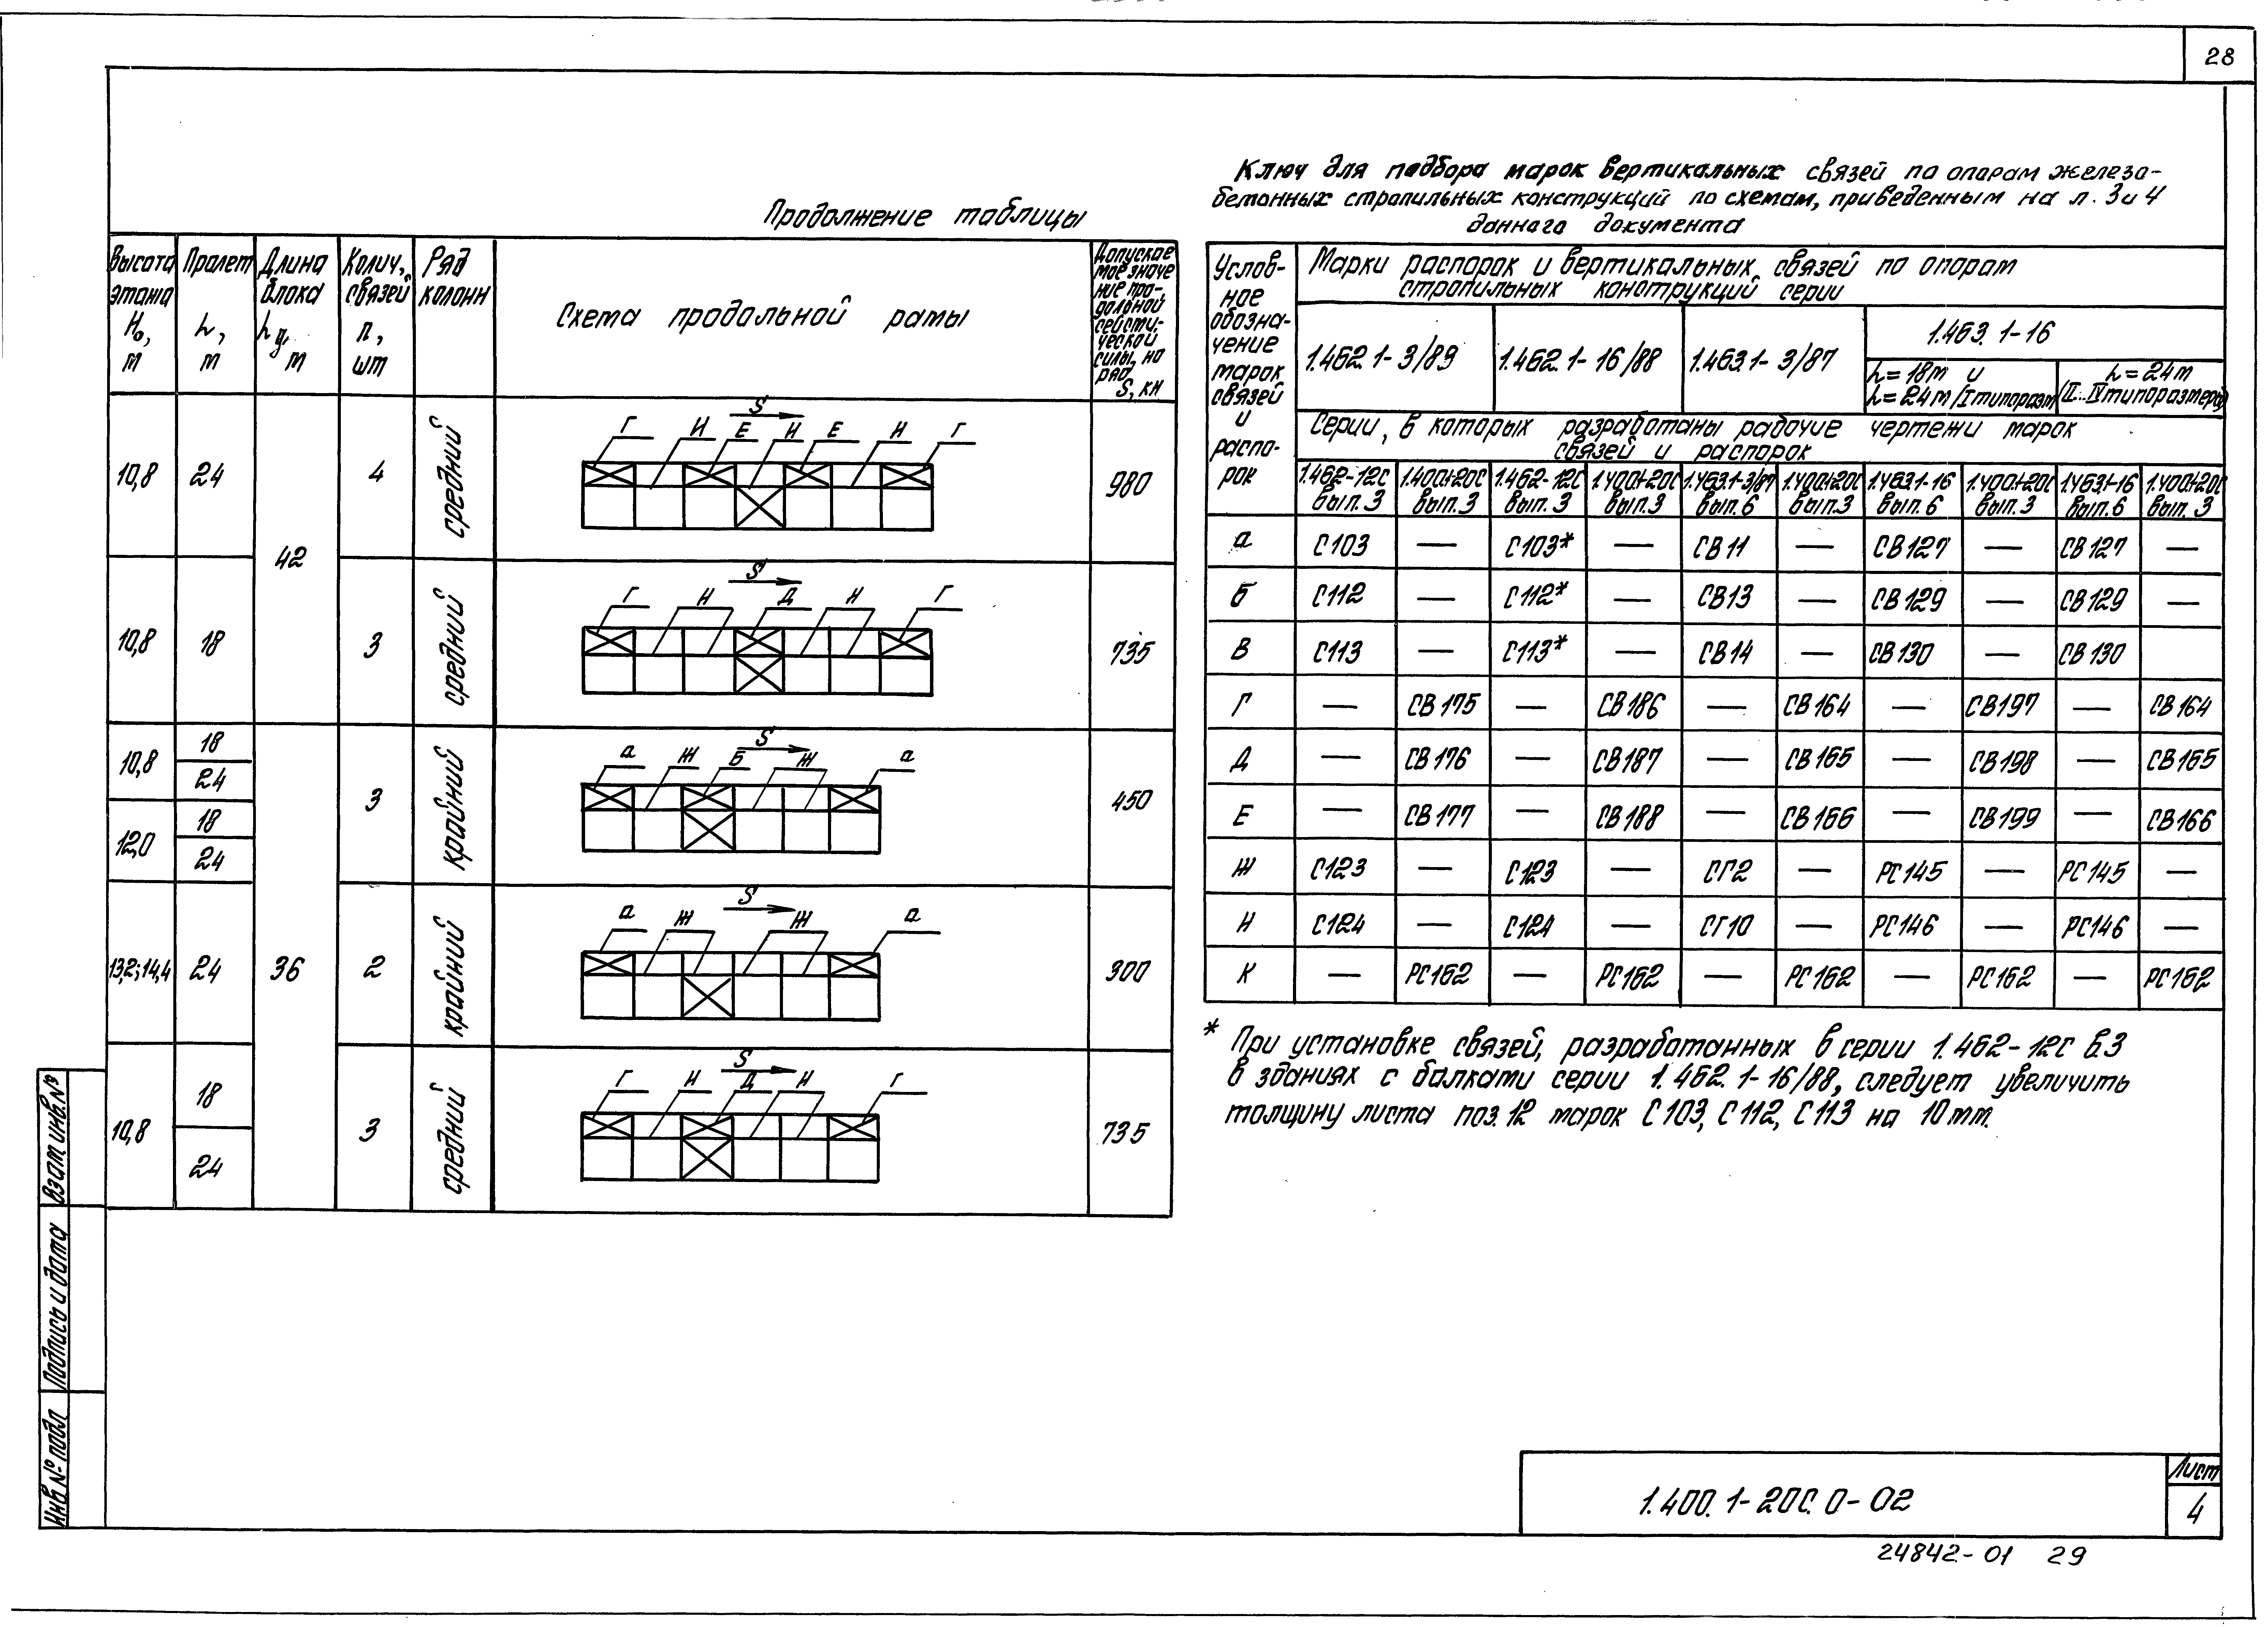 28
Продолжение таблицы
Высота этажа Н₀, м
Пролет L, м
Длина блока м
Колич. связей п, шт
Ряд колонн
Схема продольной рамы
Допускаемое значение продольной сейсмической силы, на ряд S, кН
10,8 24 42 4 средний 980
S
Г И Е И Е И Г
10,8 18 3 средний 735
S
Г И Д И Г
10,8 18 24 3 крайний 450
12,0 18 24
S
а Ж Б Ж а
13,2; 14,4 24 36 2 крайний 300
S
а Ж Ж а
10,8 18 24 3 средний 735
S
Г И Д И Г
Ключ для подбора марок вертикальных связей по опорам железо-
бетонных стропильных конструкций по схемам, приведенным на л. 3 и 4
данного документа
Услов-
ное
обозна-
чение
марок
связей
и
распо-
рок
Марки распорок и вертикальных связей по опорам
стропильных конструкций серии
1.462.1-3/89 1.462.1-16/88 1.463.1-3/87 1.463.1-16
L=18м и
L=24м /I типоразм
L=24м
/II...IV типоразмеров/
Серии, в которых разработаны рабочие чертежи марок
связей и распорок
1.462-12С 1.400.1-20С 1.462-12С 1.400.1-20С 1.463.1-3/87 1.400.1-20С 1.463.1-16 1.400.1-20С 1.463.1-16 1.400.1-20С
вып. 3 вып. 3 вып. 3 вып. 3 вып. 6 вып. 3 вып. 6 вып. 3 вып. 6 вып. 3
а С103 — С103* — СВ11 — СВ127 — СВ127 —
Б С112 — С112* — СВ13 — СВ129 — СВ129 —
В С113 — С113* — СВ14 — СВ130 — СВ130
Г — СВ175 — СВ186 — СВ164 — СВ197 — СВ164
Д — СВ176 — СВ187 — СВ165 — СВ198 — СВ165
Е — СВ177 — СВ188 — СВ166 — СВ199 — СВ166
Ж С123 — С123 — СГ2 — РС145 — РС145 —
И С124 — С124 — СГ10 — РС146 — РС146 —
К — РС162 — РС162 — РС162 — РС162 — РС162
* При установке связей, разработанных в серии 1.462-12С в.3
в зданиях с балками серии 1.462.1-16/88, следует увеличить
толщину листа поз. 12 марок С103, С112, С113 на 10мм.
Взам инв. №
Подпись и дата
Инв № подл
1.400.1-20С.0-02
Лист
4
24842-01 29